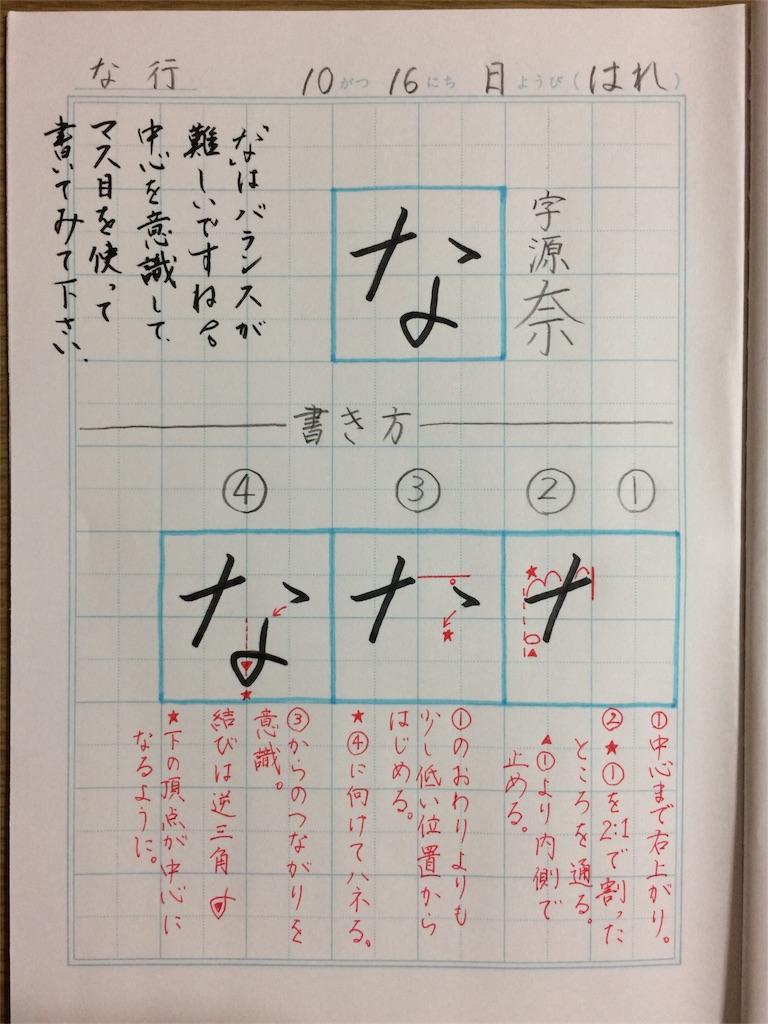 な行
10がつ16にち日ようび(はれ)
字源奈
な
"な"はバランスが
難しいですね。
中心を意識して、
マス目を使って
書いてみて下さい。
書き方
①
②
③
④
な
①中心まで右上がり。
②★①を2:1で割った
ところを通る。
▲①より内側で
止める。
①のおわりよりも
少し低い位置から
はじめる。
★④に向けてハネる。
③からのつながりを
意識。
結びは逆三角
★下の頂点が中心に
なるように。